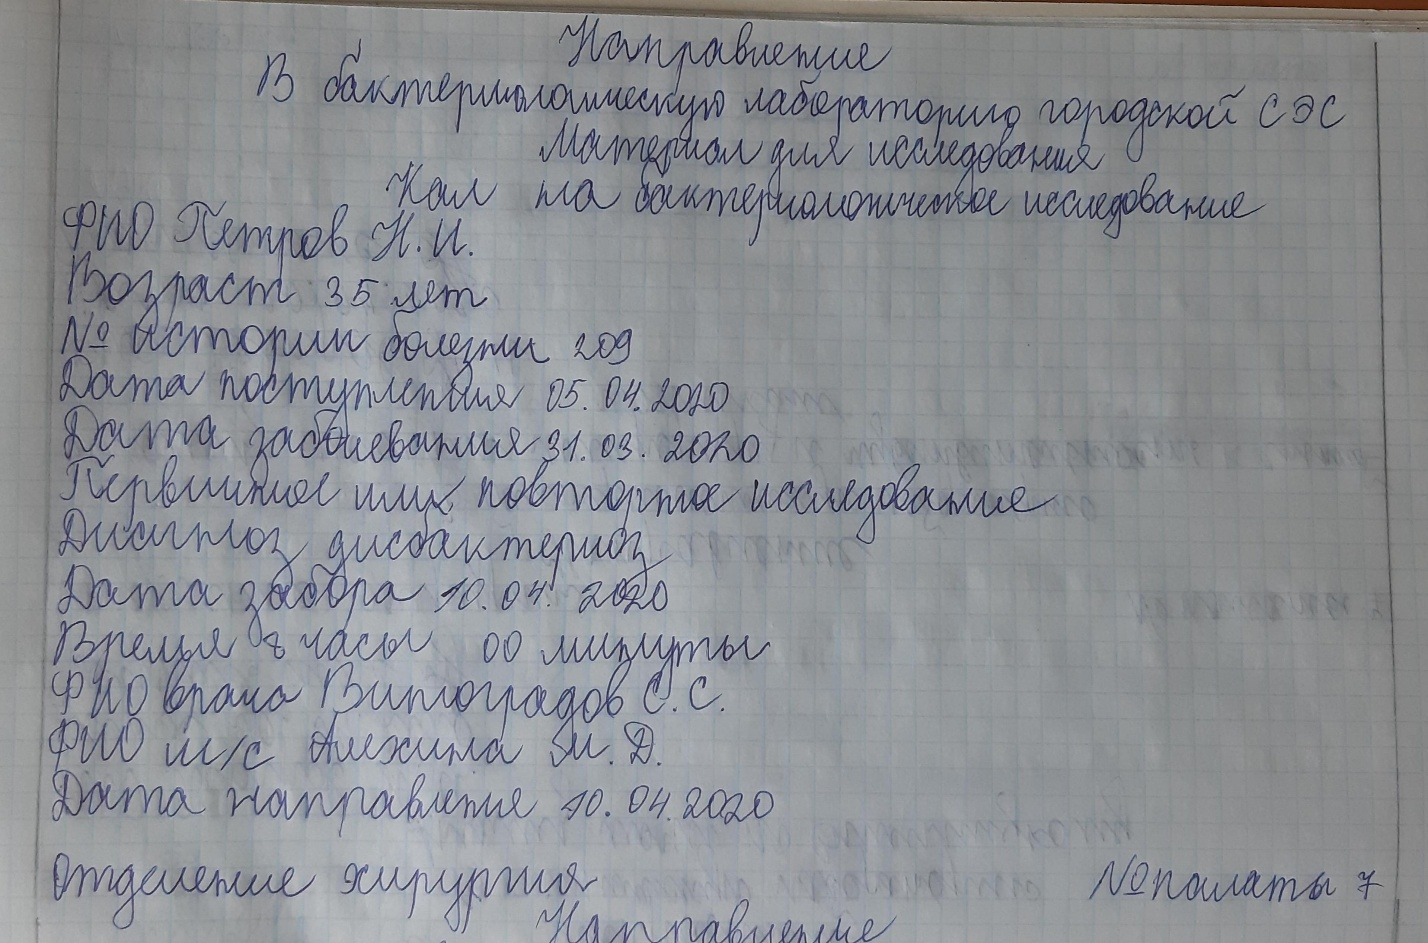 Направление
В бактериологическую лабораторию городской СЭС
Материал для исследования
Кал на бактериологическое исследование
ФИО Петров Н.И.
Возраст 35 лет
№ истории болезни 209
Дата поступления 05.04.2020
Дата заболевания 31.03.2020
Первичное или повторное исследование
Диагноз дисбактериоз
Дата забора 10.04.2020
Время 8 часы 00 минуты
ФИО врача Виноградов С.С.
ФИО м/с Алехина М.Д.
Дата направление 10.04.2020
Отделение хирургия № палаты 7
Направление